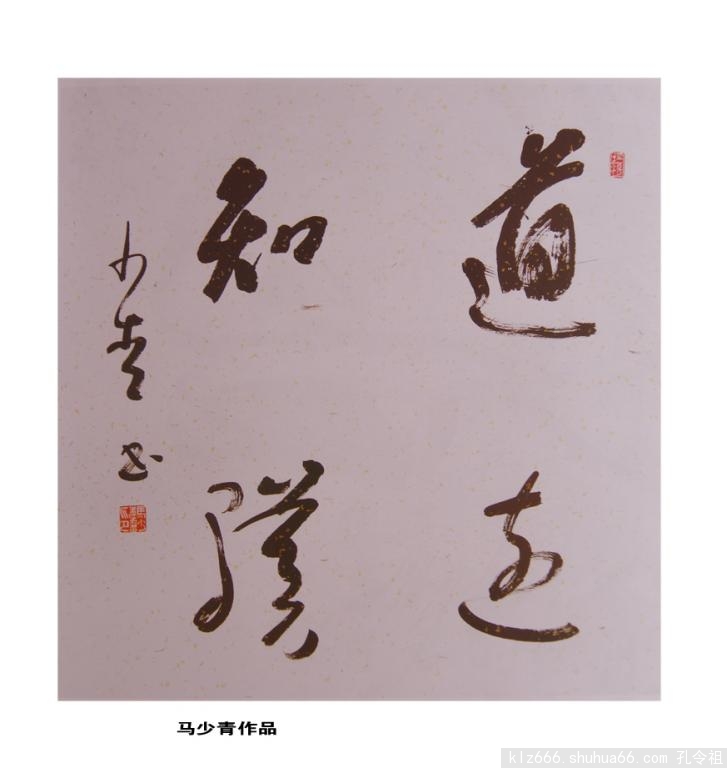 道遠
知驥
少青书
马少青作品
klz666.shuhua66.com 孔令祖